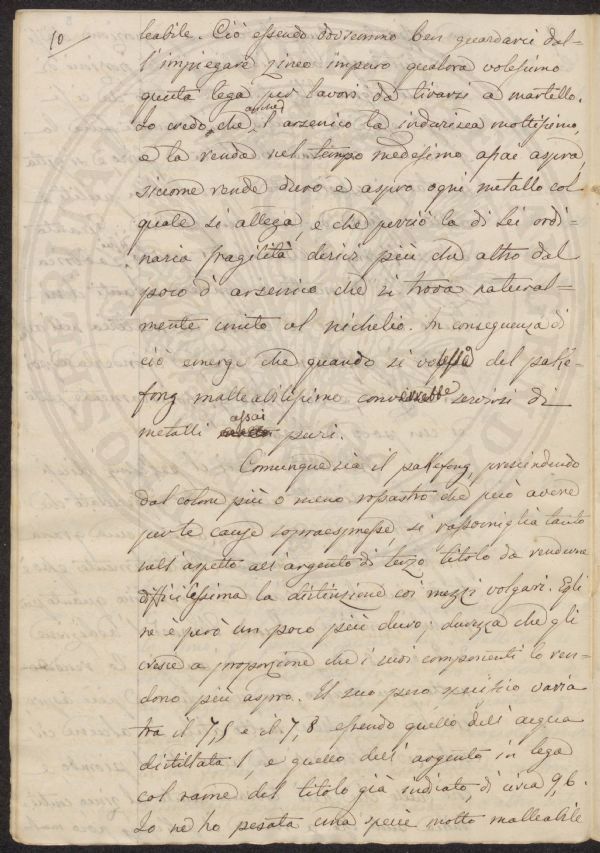 10
leabile. Ciò essendo dovremmo ben guardarci dal=
l'impiegare zinco impuro qualora volessimo
questa lega per lavori da tirarsi a martello.
Io credo che anche l'arsenico la indurisca moltissimo,
e la renda nel tempo medesimo assai aspra,
siccome rende duro e aspro ogni metallo col
quale si allega, e che perciò la di lei ordi=
naria fragilità derivi più che altro dal
poco d'arsenico che si trova natural=
mente unito al nichelio. In conseguenza di
ciò emerge che quando si volesse del pakè=
fong malleabilissimo converrebbe servirsi di
metalli assai puri.
Comunque sia il pakefong, prescindendo
dal colore più o meno rossastro che può avere
per le cause sopraespresse, si rassomiglia tanto
nell'aspetto all'argento di terzo titolo da renderne
difficilissima la distinzione coi mezzi volgari. Egli
ne è però un poco più duro; durezza che gli
cresce a proporzione che i suoi componenti lo ren=
dono più aspro. Il suo peso specifico varia
tra il 7,5 e il 7,8 essendo quello dell'acqua
distillata 1, e quello dell'argento in lega
col rame del titolo già indicato, di circa 9,6.
Io ne ho pesata una specie molto malleabile